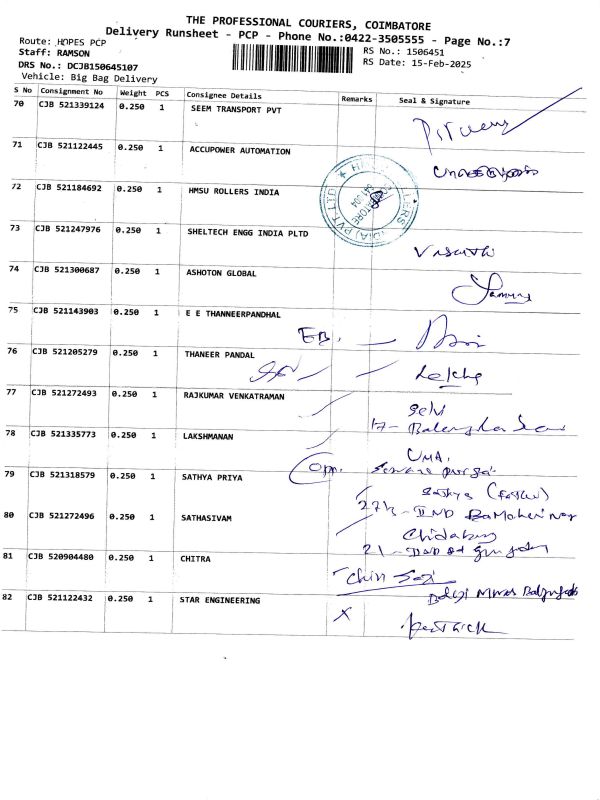 THE PROFESSIONAL COURIERS, COIMBATORE
Delivery Runsheet - PCP - Phone No.:0422-3505555 - Page No.:7
Route: HOPES PCP
RS No.: 1506451
Staff: RAMSON
RS Date: 15-Feb-2025
DRS No.: DCJB150645107
Vehicle: Big Bag Delivery
S No Consignment No Weight PCS Consignee Details Remarks Seal & Signature
70 CJB 521339124 0.250 1 SEEM TRANSPORT PVT
71 CJB 521122445 0.250 1 ACCUPOWER AUTOMATION
72 CJB 521184692 0.250 1 HMSU ROLLERS INDIA
73 CJB 521247976 0.250 1 SHELTECH ENGG INDIA PLTD
Vasanthi
74 CJB 521300687 0.250 1 ASHOTON GLOBAL
75 CJB 521143903 0.250 1 E E THANNEERPANDHAL
EB.
76 CJB 521205279 0.250 1 THANEER PANDAL
Lekha
77 CJB 521272493 0.250 1 RAJKUMAR VENKATRAMAN
Selvi
78 CJB 521335773 0.250 1 LAKSHMANAN
UMA.
Opp.
79 CJB 521318579 0.250 1 SATHYA PRIYA
80 CJB 521272496 0.250 1 SATHASIVAM
81 CJB 520904480 0.250 1 CHITRA
82 CJB 521122432 0.250 1 STAR ENGINEERING
X